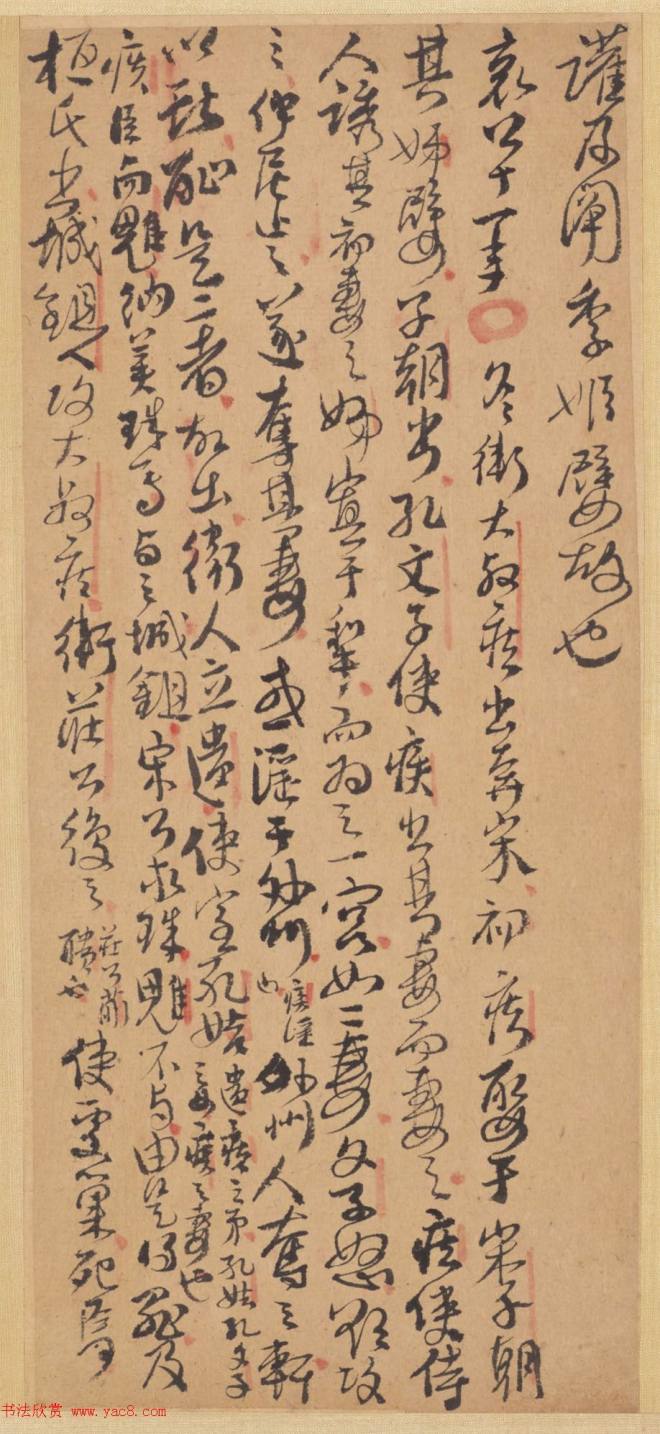 讙及闡季姬嬖故也
哀公十一年○冬衛大叔疾出奔宋初疾娶于宋子朝
其娣嬖子朝出孔文子使疾出其妻而妻之疾使侍
人誘其初妻之娣寘于犂而为之一宮如二妻文子怒欲攻
之仲尼止之遂奪其妻或淫于外州疾淫也外州人奪之軒
以獻耻是二者故出衛人立遺使室孔姞遺疾之弟孔姞孔文子之女疾之妻也
疾臣向魋納美珠焉与之城鉏宋公求珠魋不与由是得罪及
桓氏出城鉏人攻大叔疾衛莊公復之莊公蒯聵也使處巢死焉
书法欣赏 www.yac8.com